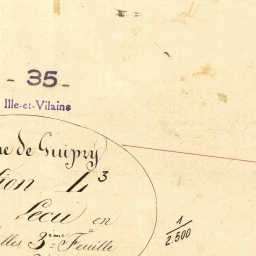 - 35 -
Ille-et-Vilaine
ne de Guipry
tion L³
Lecu en
lles 3ème Feuille
1/2.500